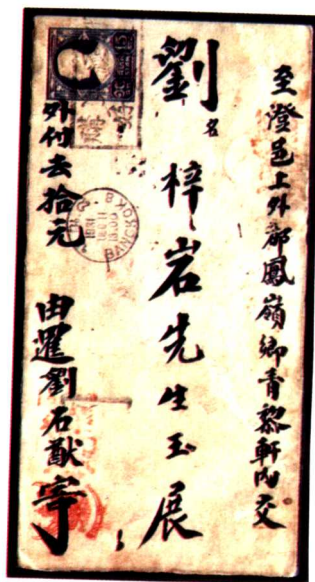 至澄邑上外都鳳嶺鄉青黎軒內交
劉名梓岩先生玉展
外付去拾元
由暹劉石猷寄
BANGKOK